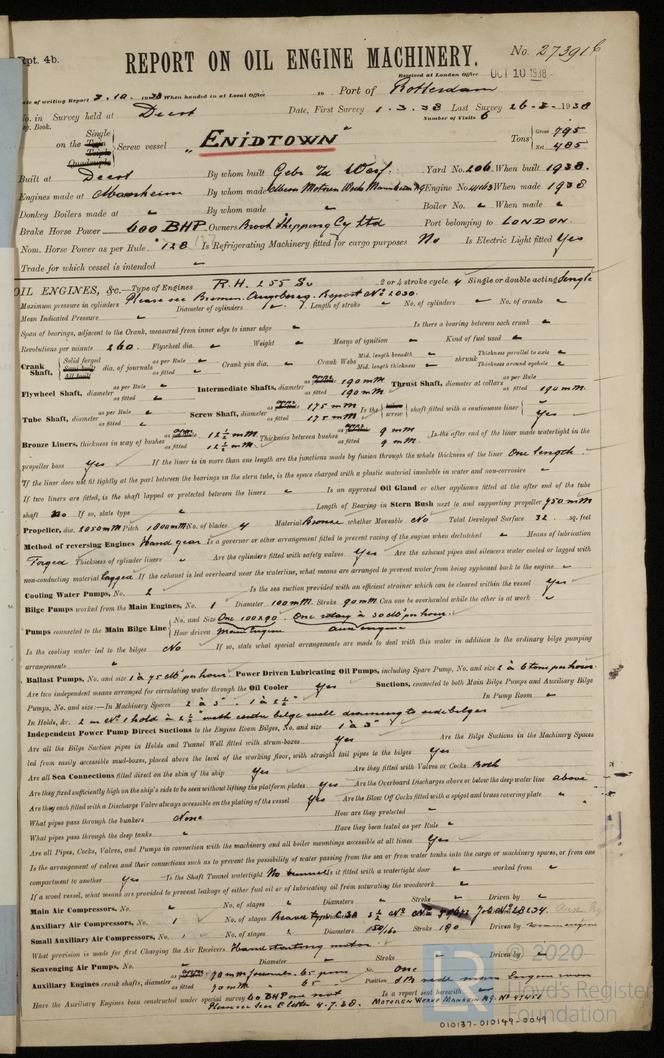 Rpt. 4b.
REPORT ON OIL ENGINE MACHINERY. No. 27391b
Received at London Office OCT 10 1938
Date of writing Report 3.10.1938 When handed in at Local Office to Port of Rotterdam
No. in Survey held at Deest Date, First Survey 1.3.38 Last Survey 26-8-1938
Book. Number of Visits 6
on the Single Twin Triple Quadruple Screw vessel "ENIDTOWN" Tons Gross 795 Net 485
Built at Deest By whom built Gebr v/d Werf. Yard No. 206 When built 1938.
Engines made at Mannheim By whom made Motoren Werke Mannheim AG Engine No. When made 1938
Donkey Boilers made at " By whom made " Boiler No. " When made "
Brake Horse Power 600 BHP Owners Brook Shipping Cy Ltd Port belonging to LONDON.
Nom. Horse Power as per Rule 128 Is Refrigerating Machinery fitted for cargo purposes No Is Electric Light fitted Yes
Trade for which vessel is intended "
OIL ENGINES, &c.—Type of Engines R.H. 255 Su 2 or 4 stroke cycle 4 Single or double acting Single
Maximum pressure in cylinders Please see Bremen Augsburg. Report No 2030. Diameter of cylinders Length of stroke No. of cylinders No. of cranks
Mean Indicated Pressure
Span of bearings, adjacent to the Crank, measured from inner edge to inner edge Is there a bearing between each crank
Revolutions per minute 260. Flywheel dia. Weight Means of ignition Kind of fuel used
Crank Shaft, Solid forged Semi built All built dia. of journals as per Rule as fitted Crank pin dia. Crank Webs Mid. length breadth Mid. length thickness shrunk Thickness parallel to axis Thickness around eyehole
Flywheel Shaft, diameter as per Rule as fitted Intermediate Shafts, diameter 190 mm as fitted 190 mm Thrust Shaft, diameter at collars as per Rule as fitted 190 mm.
Tube Shaft, diameter as per Rule as fitted Screw Shaft, diameter 175 mm as fitted 175 mm Is the tube screw shaft fitted with a continuous liner Yes
Bronze Liners, thickness in way of bushes 12 ½ mm as fitted 12 ½ mm Thickness between bushes 9 mm as fitted 9 mm. Is the after end of the liner made watertight in the
propeller boss Yes If the liner is in more than one length are the junctions made by fusion through the whole thickness of the liner One length.
If the liner does not fit tightly at the part between the bearings in the stern tube, is the space charged with a plastic material insoluble in water and non-corrosive
If two liners are fitted, is the shaft lapped or protected between the liners Is an approved Oil Gland or other appliance fitted at the after end of the tube
shaft No If so, state type Length of Bearing in Stern Bush next to and supporting propeller 750 mm
Propeller, dia. 2050 mm Pitch 1800 mm No. of blades 4 Material Bronze whether Moveable No Total Developed Surface 32 sq. feet
Method of reversing Engines Hand gear Is a governor or other arrangement fitted to prevent racing of the engine when declutched Means of lubrication
Forged Thickness of cylinder liners Are the cylinders fitted with safety valves Yes Are the exhaust pipes and silencers water cooled or lagged with
non-conducting material lagged If the exhaust is led overboard near the waterline, what means are arranged to prevent water from being syphoned back to the engine
Cooling Water Pumps, No. 2 Is the sea suction provided with an efficient strainer which can be cleared within the vessel Yes
Bilge Pumps worked from the Main Engines, No. 1 Diameter 100 mm. Stroke 90 mm Can one be overhauled while the other is at work
Pumps connected to the Main Bilge Line No. and Size One 100x90. One rotary à 30 M³ per hour.
How driven Main engine Aux engine
Is the cooling water led to the bilges No If so, state what special arrangements are made to deal with this water in addition to the ordinary bilge pumping
arrangements
Ballast Pumps, No. and size 1 à 75 M³ per hour. Power Driven Lubricating Oil Pumps, including Spare Pump, No. and size 2 à 6 tons per hour.
Are two independent means arranged for circulating water through the Oil Cooler Yes Suctions, connected to both Main Bilge Pumps and Auxiliary Bilge
Pumps, No. and size:—In Machinery Spaces 2 à 3". 1 à 2½" In Pump Room
In Holds, &c. 2 in No 1 hold à 2½" with centre bilge well draining to side bilges
Independent Power Pump Direct Suctions to the Engine Room Bilges, No. and size 1 à 3"
Are all the Bilge Suction pipes in Holds and Tunnel Well fitted with strum-boxes Yes Are the Bilge Suctions in the Machinery Spaces
led from easily accessible mud-boxes, placed above the level of the working floor, with straight tail pipes to the bilges Yes
Are all Sea Connections fitted direct on the skin of the ship Yes Are they fitted with Valves or Cocks Both
Are they fixed sufficiently high on the ship's side to be seen without lifting the platform plates Yes Are the Overboard Discharges above or below the deep water line above
Are they each fitted with a Discharge Valve always accessible on the plating of the vessel Yes Are the Blow Off Cocks fitted with a spigot and brass covering plate
What pipes pass through the bunkers None How are they protected
What pipes pass through the deep tanks Have they been tested as per Rule
Are all Pipes, Cocks, Valves, and Pumps in connection with the machinery and all boiler mountings accessible at all times Yes
Is the arrangement of valves and their connections such as to prevent the possibility of water passing from the sea or from water tanks into the cargo or machinery spaces, or from one
compartment to another Yes Is the Shaft Tunnel watertight No tunnel Is it fitted with a watertight door worked from
If a wood vessel, what means are provided to prevent leakage of either fuel oil or of lubricating oil from saturating the woodwork
Main Air Compressors, No. No. of stages Diameters Stroke Driven by
Auxiliary Air Compressors, No. 1 No. of stages Driven by
Small Auxiliary Air Compressors, No. 1 No. of stages 2 Diameters 150/60 Stroke 190 Driven by
What provision is made for first Charging the Air Receivers Hand starting motor.
Scavenging Air Pumps, No.
Auxiliary Engines crank shafts, diameter as fitted 70 mm No. One Position
Have the Auxiliary Engines been constructed under special survey 60 BHP one not Is a report sent herewith
Please see E letter 4.7.38. MOTOREN WERKE MANNHEIM AG.
© 2020
Lloyd's Register
Foundation
010137-010149-0049